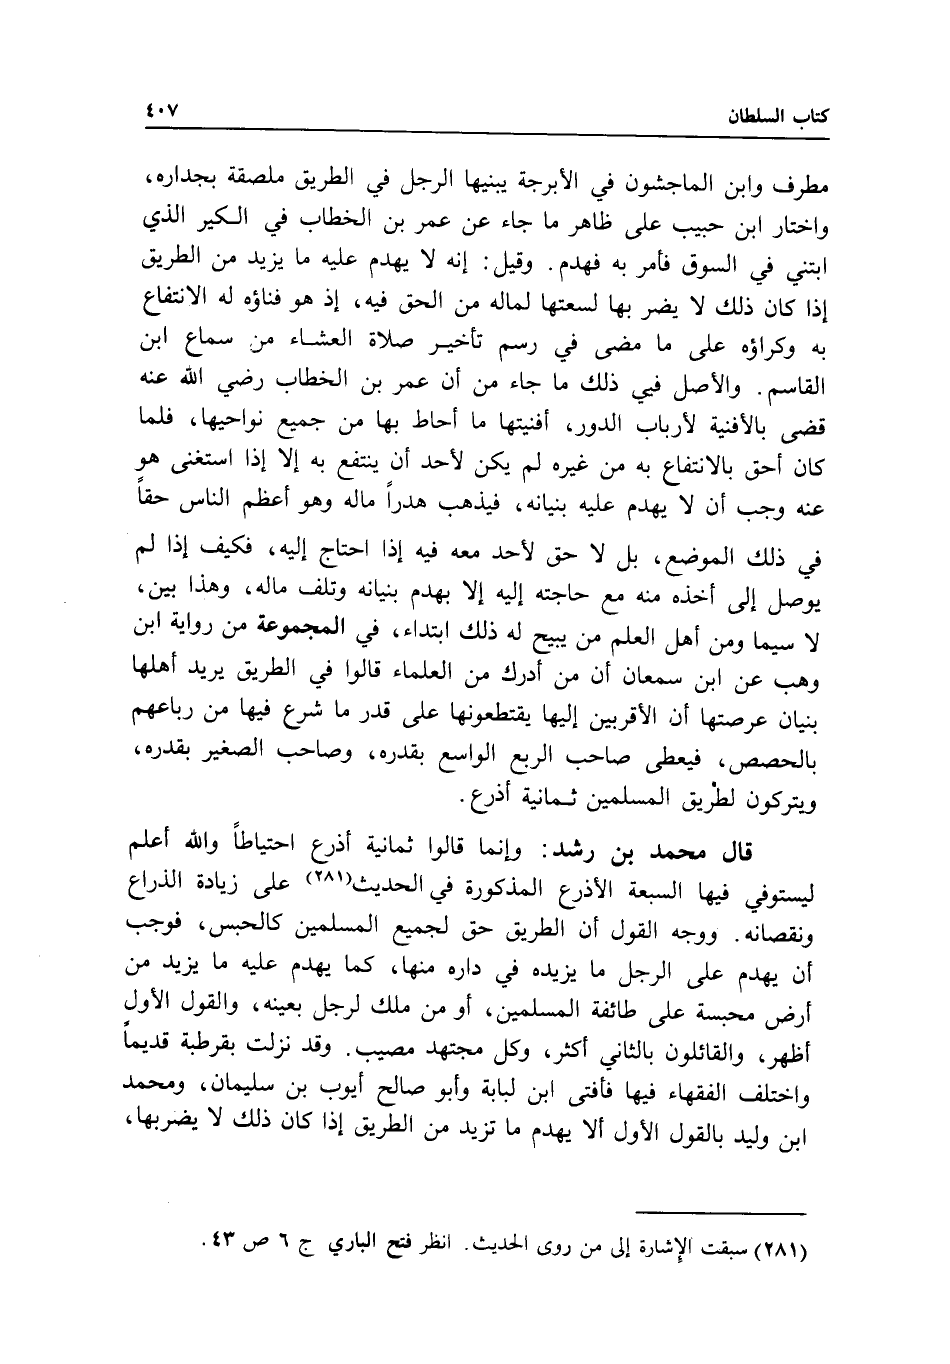 كتاب السلطان ٤٠٧
مطرف وابن الماجشون في الأبرجة يبنيها الرجل في الطريق ملصقة بجداره،
واختار ابن حبيب على ظاهر ما جاء عن عمر بن الخطاب في الكير الذي
ابتني في السوق فأمر به فهدم. وقيل: إنه لا يهدم عليه ما يزيد من الطريق
إذا كان ذلك لا يضر بها لسعتها لماله من الحق فيه، إذ هو فناؤه له الانتفاع
به وكراؤه على ما مضى في رسم تأخير صلاة العشاء من سماع ابن
القاسم. والأصل فيي ذلك ما جاء من أن عمر بن الخطاب رضي الله عنه
قضى بالأفنية لأرباب الدور، أفنيتها ما أحاط بها من جميع نواحيها، فلما
كان أحق بالانتفاع به من غيره لم يكن لأحد أن ينتفع به إلا إذا استغنى هو
عنه وجب أن لا يهدم عليه بنيانه، فيذهب هدراً ماله وهو أعظم الناس حقاً
في ذلك الموضع، بل لا حق لأحد معه فيه إذا احتاج إليه، فكيف إذا لم
يوصل إلى أخذه منه مع حاجته إليه إلا بهدم بنيانه وتلف ماله، وهذا بين،
لا سيما ومن أهل العلم من يبيح له ذلك ابتداء، في المجموعة من رواية ابن
وهب عن ابن سمعان أن من أدرك من العلماء قالوا في الطريق يريد أهلها
بنيان عرصتها أن الأقربين إليها يقتطعونها على قدر ما شرع فيها من رباعهم
بالحصص، فيعطى صاحب الربع الواسع بقدره، وصاحب الصغير بقدره،
ويتركون لطريق المسلمين ثمانية أذرع.
قال محمد بن رشد: وإنما قالوا ثمانية أذرع احتياطاً والله أعلم
ليستوفي فيها السبعة الأذرع المذكورة في الحديث(٢٨١) على زيادة الذراع
ونقصانه. ووجه القول أن الطريق حق لجميع المسلمين كالحبس، فوجب
أن يهدم على الرجل ما يزيده في داره منها، كما يهدم عليه ما يزيد من
أرض محبسة على طائفة المسلمين، أو من ملك لرجل بعينه، والقول الأول
أظهر، والقائلون بالثاني أكثر، وكل مجتهد مصيب. وقد نزلت بقرطبة قديماً
واختلف الفقهاء فيها فأفتى ابن لبابة وأبو صالح أيوب بن سليمان، ومحمد
ابن وليد بالقول الأول ألا يهدم ما تزيد من الطريق إذا كان ذلك لا يضربها،
(٢٨١) سبقت الإشارة إلى من روى الحديث. انظر فتح الباري ج ٦ ص ٤٣.